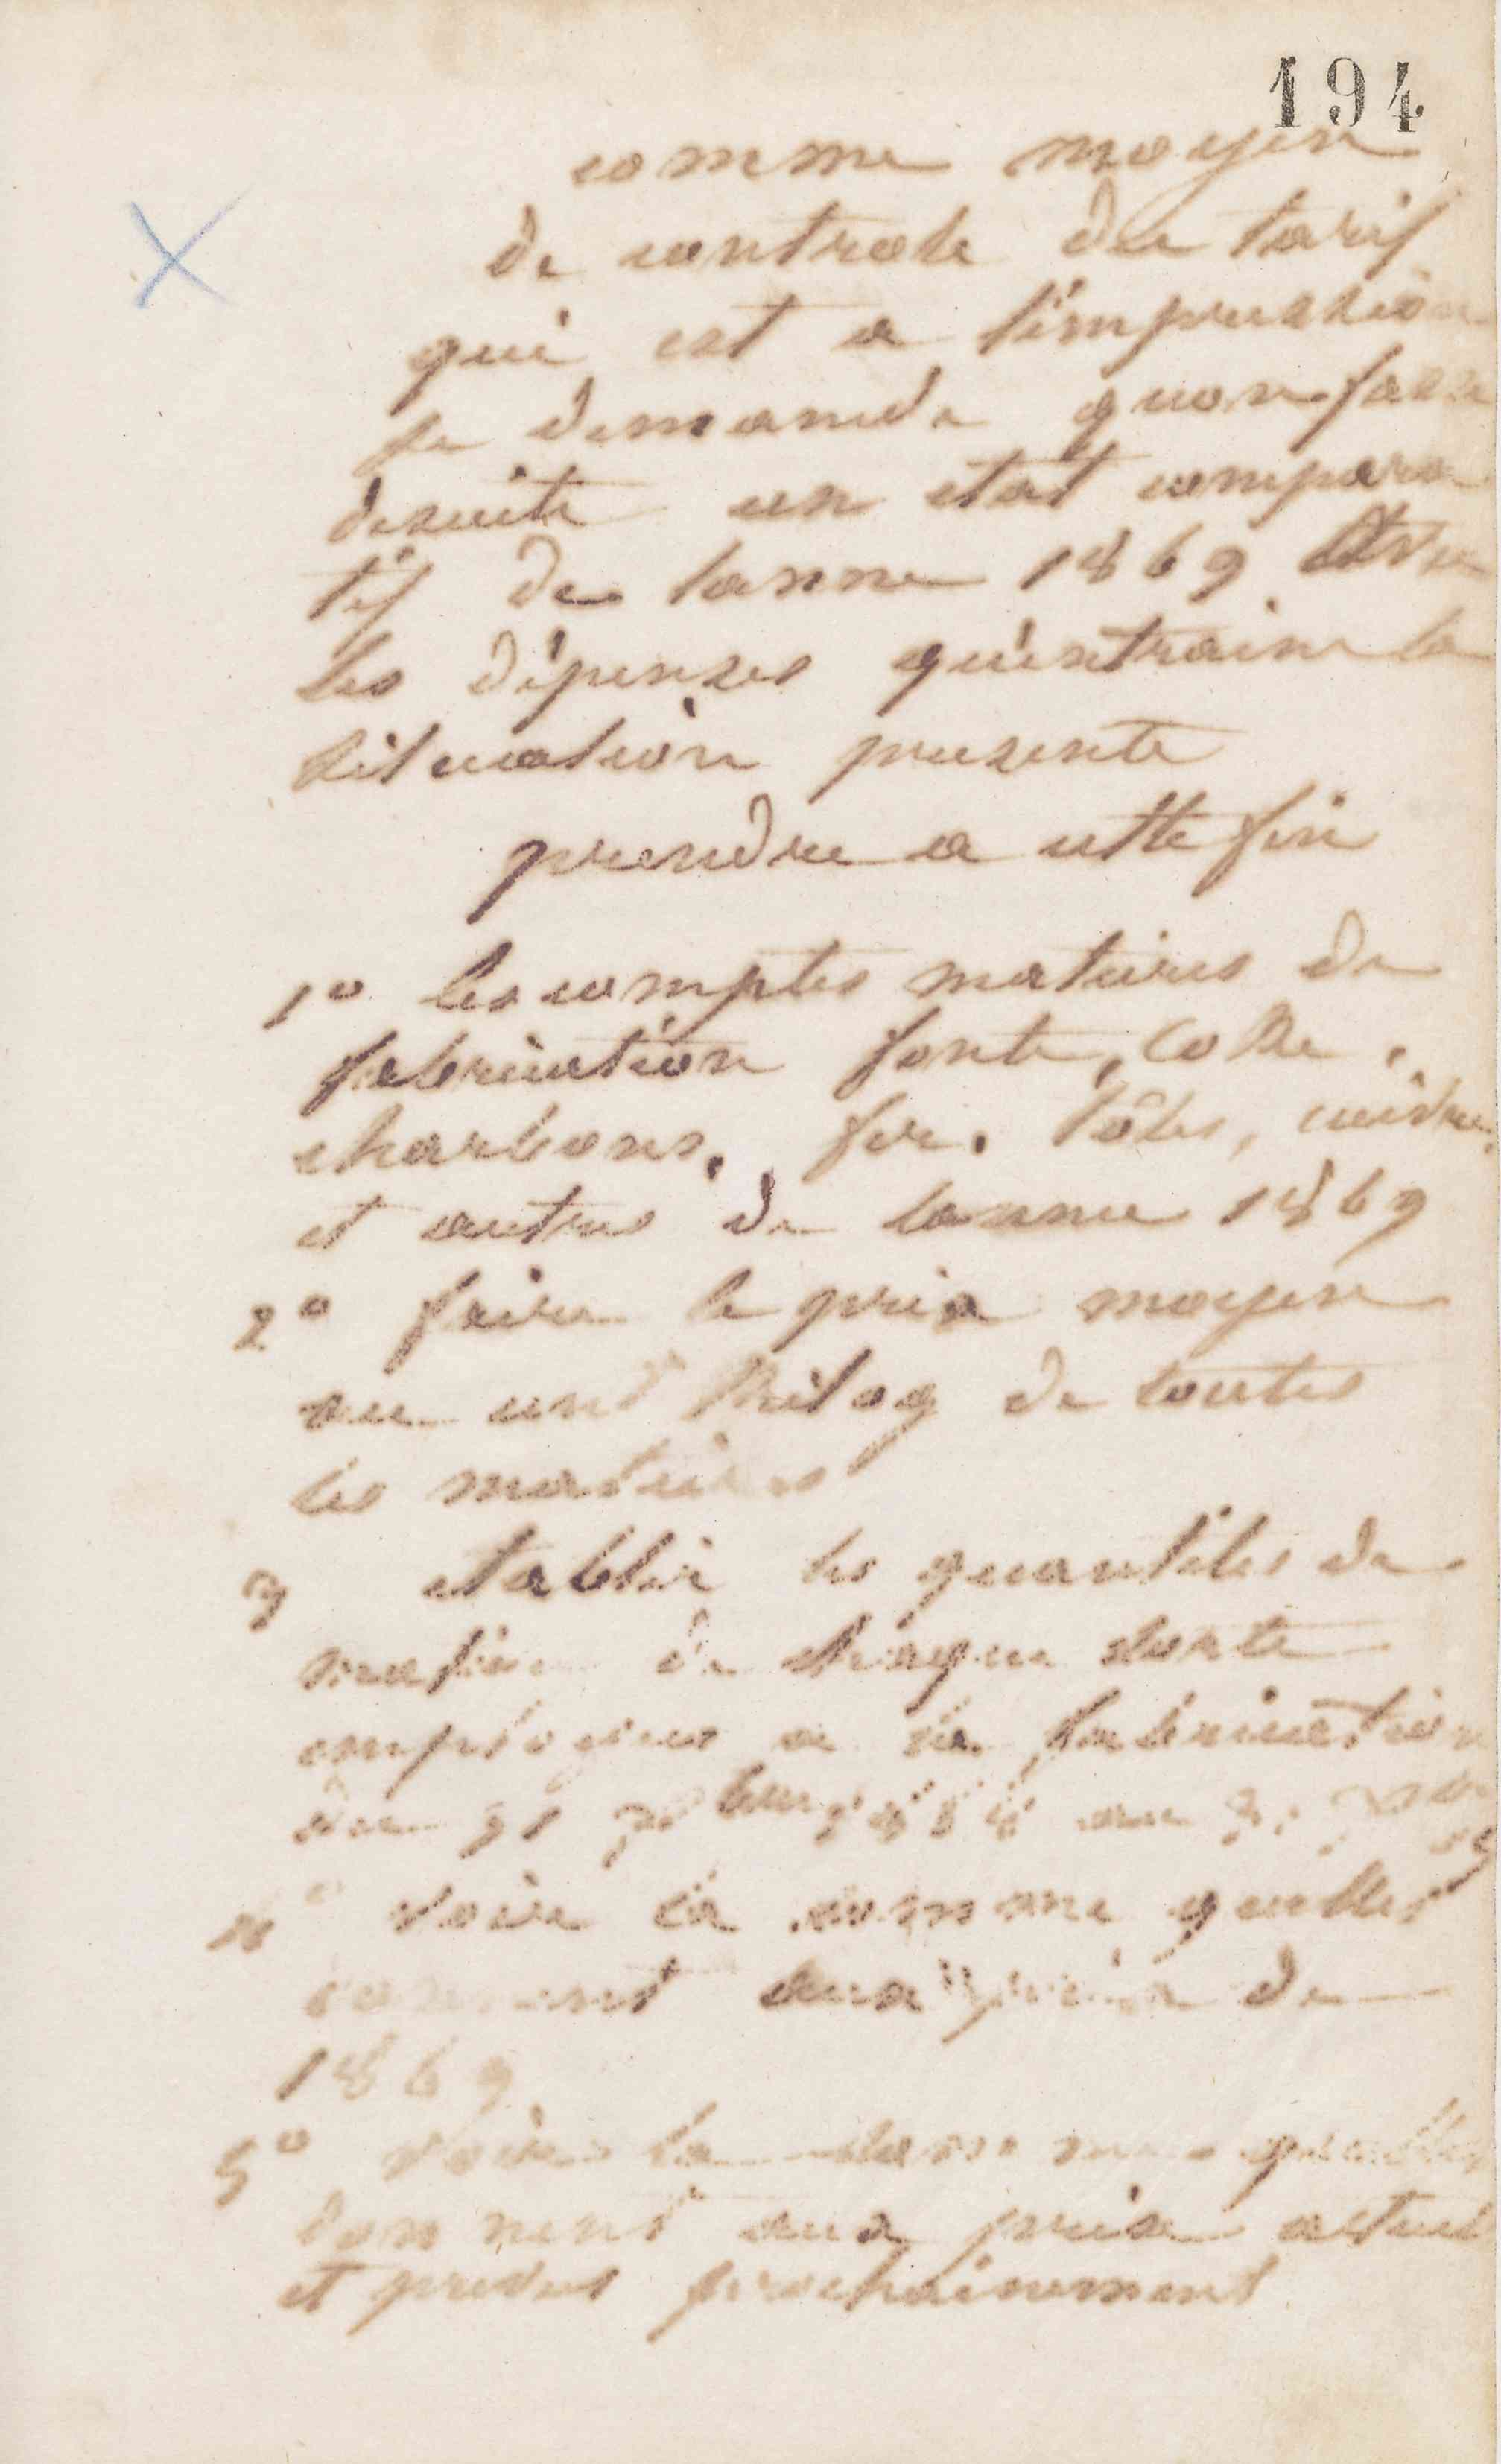 194
comme moyen
de controle du tarif
qui est a l'impression
je demande quon fasse
desuite un etat compara
tif de lanne 1869 Avec
les dépenses qu'entraine la
situation presente
prendre a cette fin
1o les comptes matieres de
fabrication fonte, Coke,
charbons, fer, tôles, cuivre,
et autres de lannee 1869
2o faire le prix moyen
au cent kilog de toutes
les matieres
3 etablir les quantites de
matiere de chaque sorte
employees a la fabrication
du 31 au
4o voir la somme quelles
donnent aux prix de
1869
5o voir la somme quelles
donnent aux prix actuel
et prevus prochainement